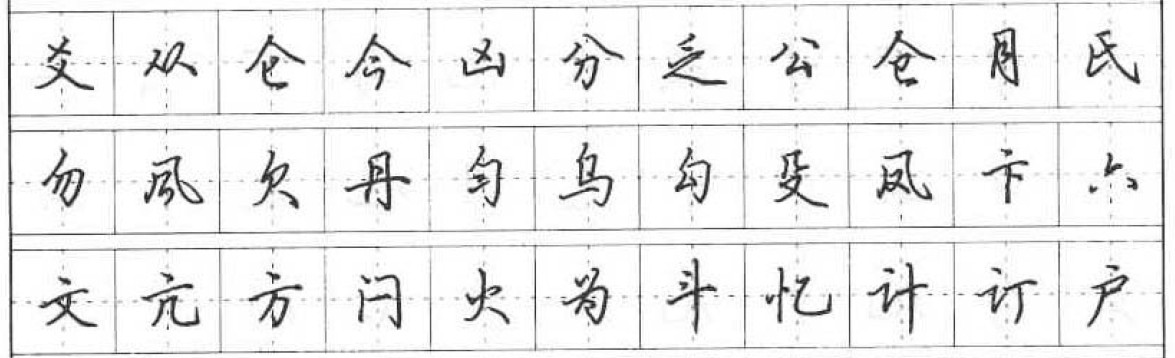 爻从仑今凶分乏公仓月氏
勿风欠丹匀乌勾殳凤卞六
文亢方闩火为斗忆计订户